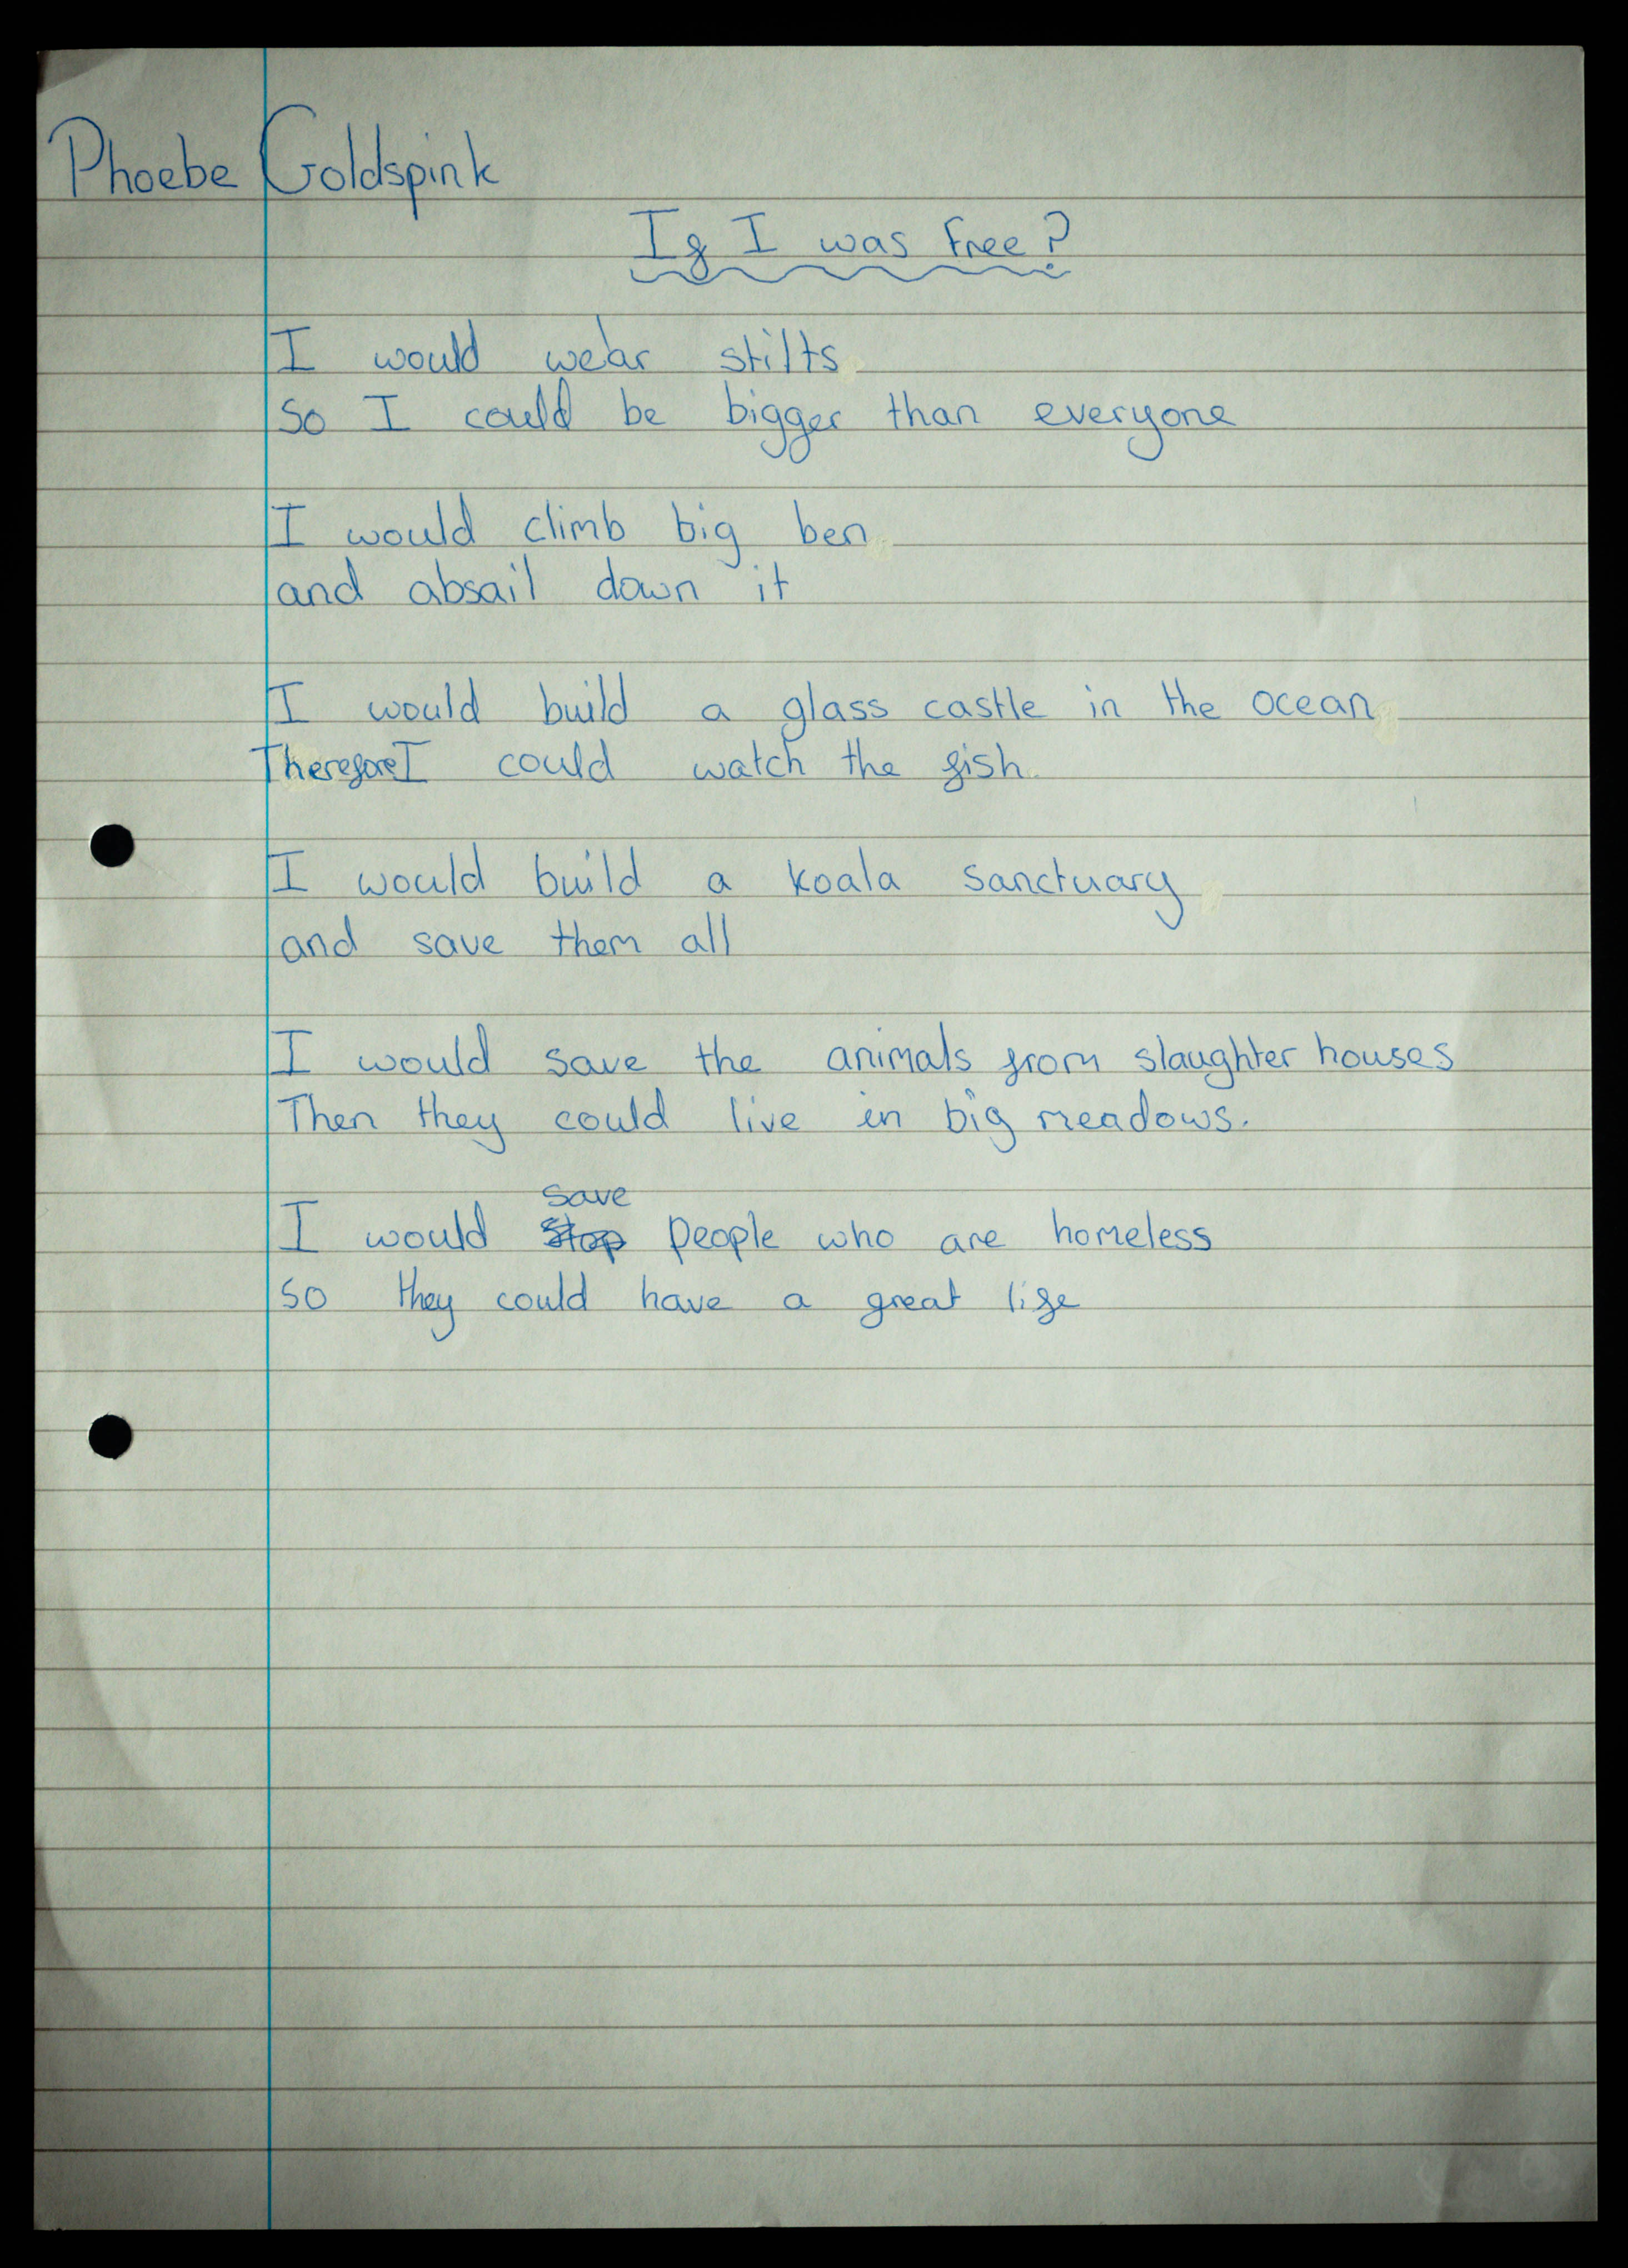 Phoebe Goldspink
If I was free?
I would wear stilts
So I could be bigger than everyone
I would climb big ben
and absail down it
I would build a glass castle in the ocean
Therefore I could watch the fish
I would build a koala sanctuary
and save them all
I would save the animals from slaughter houses
Then they could live in big meadows.
save
I would stop people who are homeless
so they could have a great life